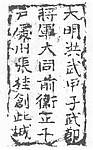 大明洪武甲子武節
將軍大同前衛正千
戶雷州張桂創此城